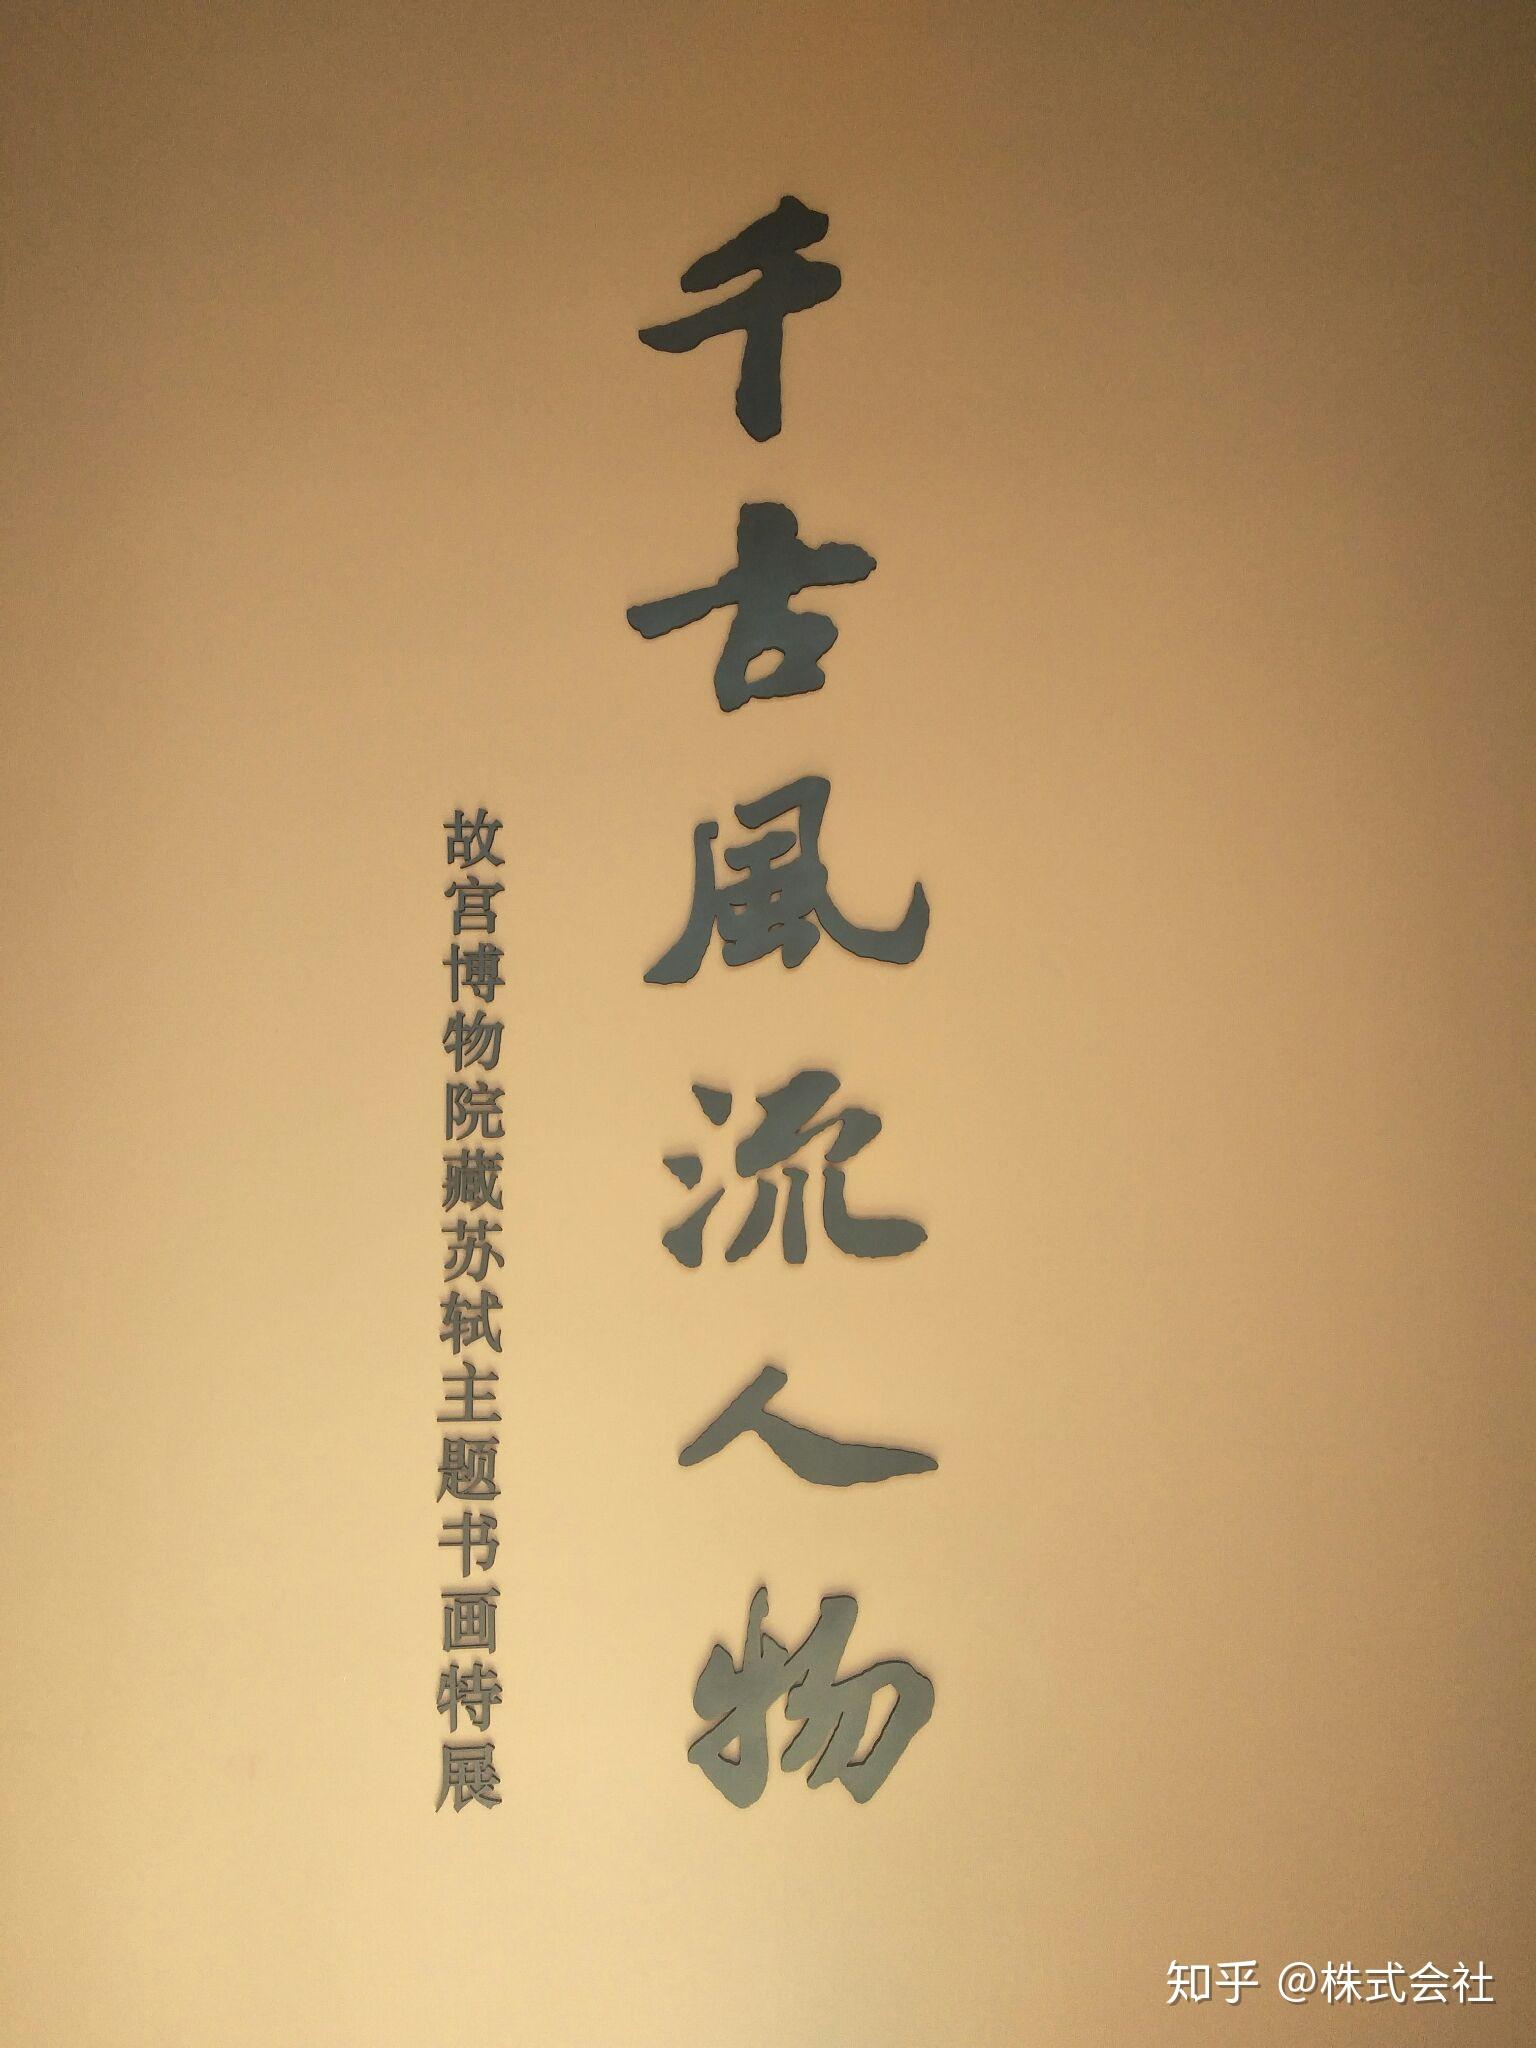 千古風流人物
故宫博物院藏苏轼主题书画特展
知乎 @株式会社